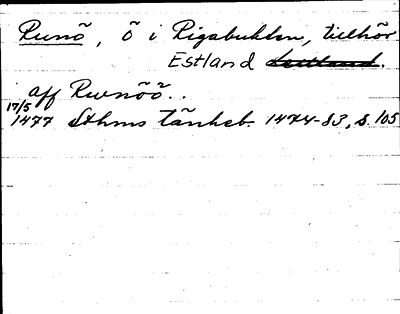 Runö, ö i Rigabukten, tillhör
Estland
aff Rwnöö..
17/5
1477 Sthms tänkeb. 1474-83, s. 105